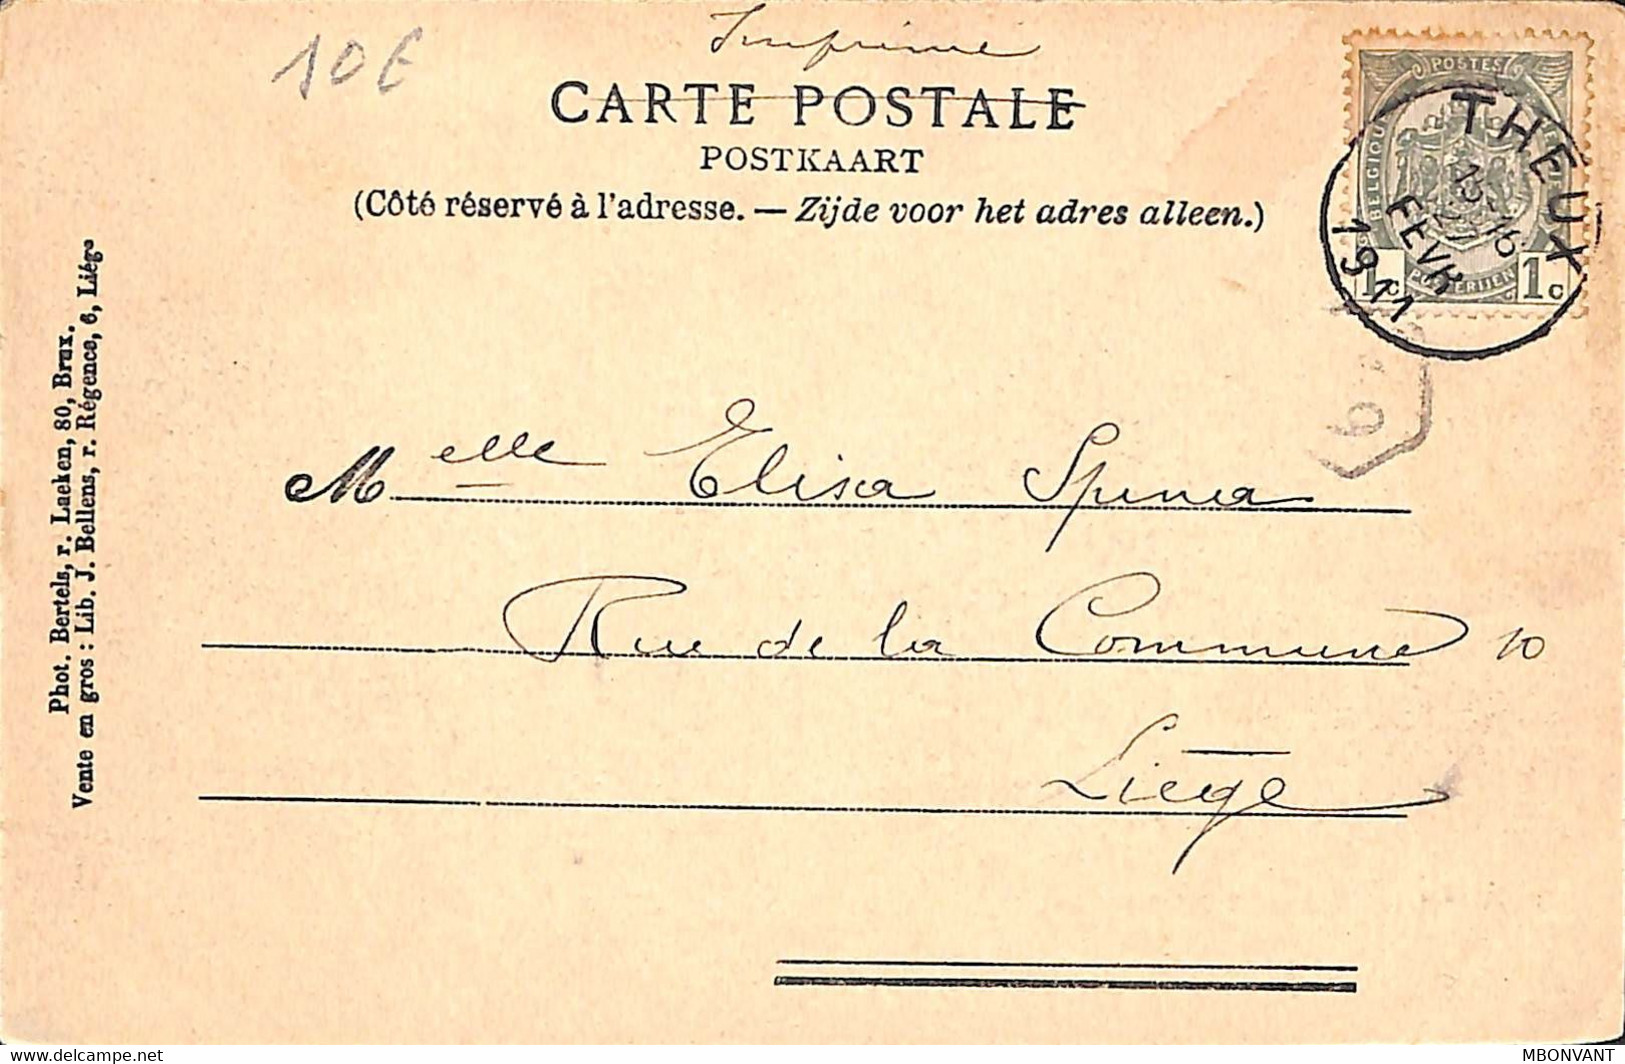 10€
Imprimé
CARTE POSTALE
POSTKAART
(Côté réservé à l'adresse. — Zijde voor het adres alleen.)
POSTES
BELGIQUE
POSTERIJEN
1c 1c
THEUX
15-16
27
FEVR
1911
9
Melle Elisa
Rue de la Commune 10
Liége
Phot. Bertels, r. Laeken, 80, Brux.
Vente en gros : Lib. J. Bellens, r. Régence, 6, Liége
delcampe.net
MBONVANT